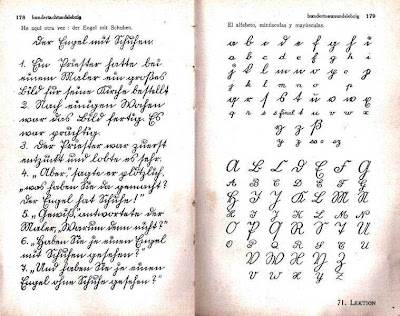 178 hundertachtundsiebzig
He aquí otra vez : der Engel mit Schuhen.
Der Engel mit Schuhen.
1. Ein Priester hatte bei
einem Maler ein großes
Bild für seine Kirche bestellt.
2. Nach einigen Wochen
war das Bild fertig. Es
war prächtig.
3. Der Priester war zuerst
entzückt und lobte es sehr.
4. „Aber," sagte er plötzlich,
„was haben Sie da gemacht?
Der Engel hat Schuhe!"
5. „Gewiß, antwortete der
Maler, „Warum denn nicht?"
6. „Haben Sie je einen Engel
mit Schuhen gesehen?"
7. „Und haben Sie je einen
Engel ohne Schuhe gesehen?"
hundertneunundsiebzig 179
El alfabeto, minúsculas y mayúsculas.
a b c d e f g h i
a b c d e f g h i
j k l m n o p
j k l m n o p
q r s t u v w x
q r s s final t u v w x
y z ß
y z ss o sz
A B C D E F G
A B C D E F G
H I J K L M N
H I J K L M N
O P Q R S T U
O P Q R S T U
V W X Y Z
V W X Y Z
71. LEKTION